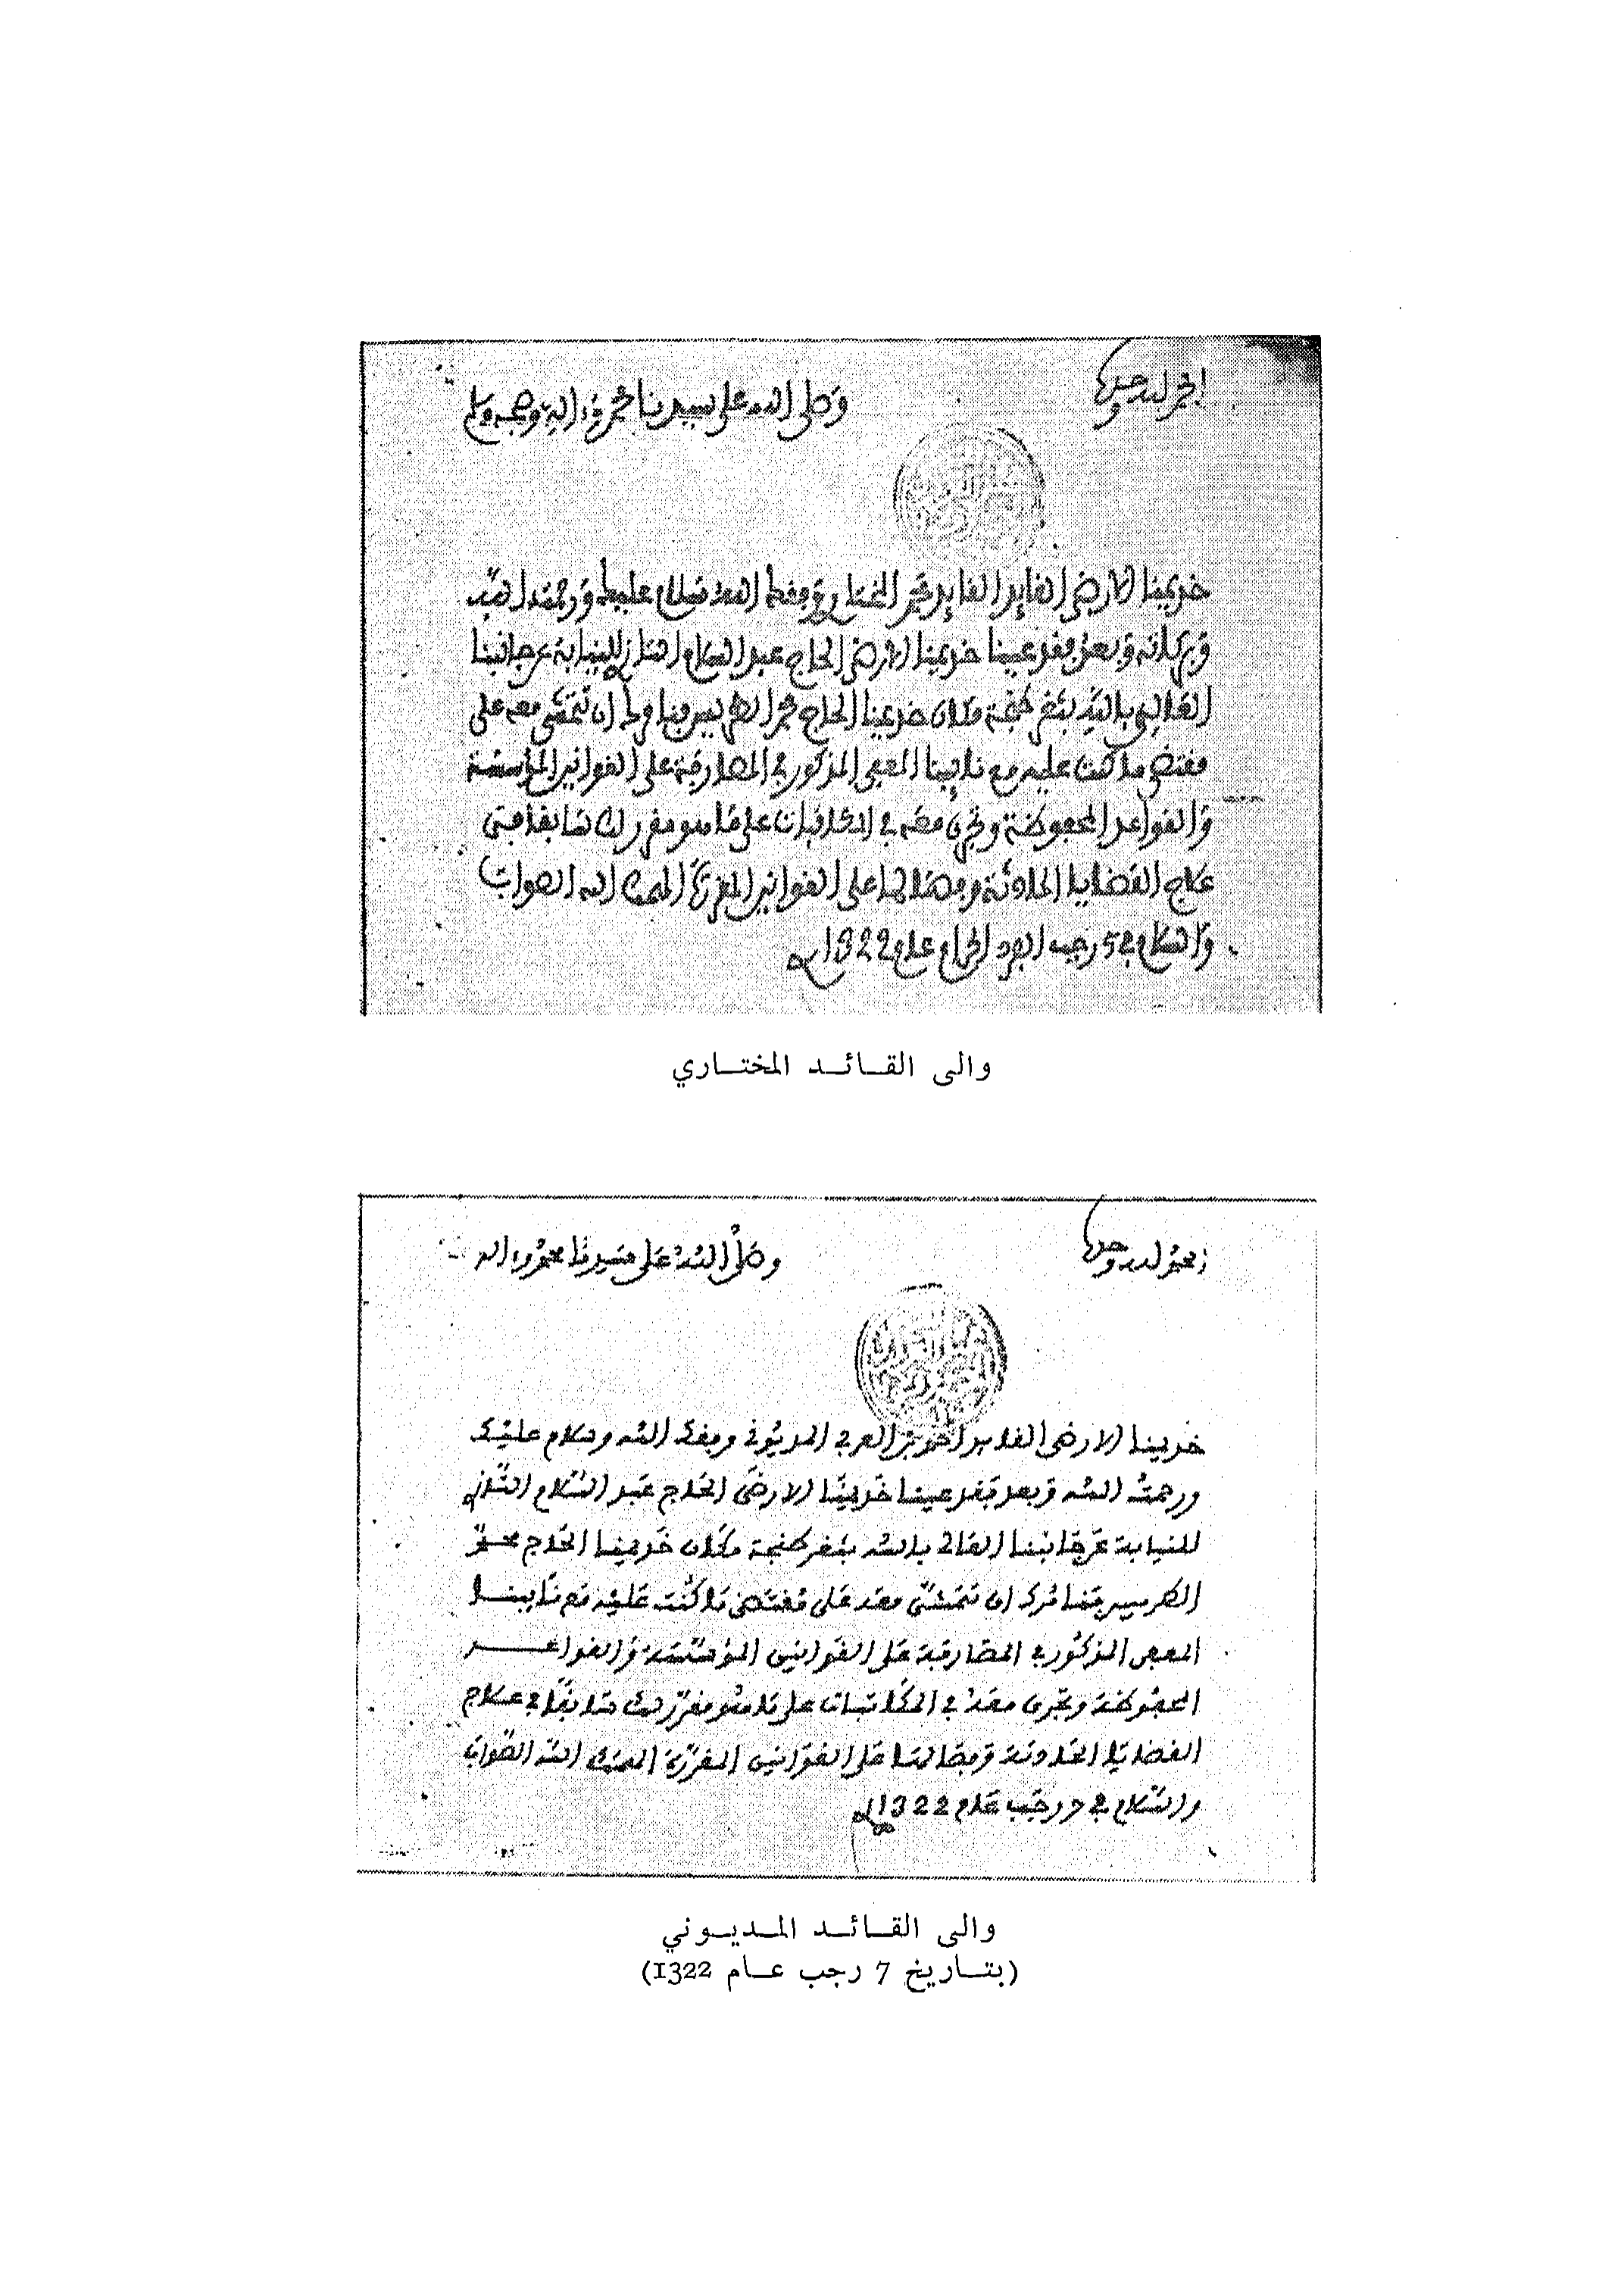 الحمد لله وحده
وصلى الله على سيدنا محمد وءاله وصحبه وسلم
خديمنا الارضى القايد محمد المختاري وفقك الله وسلام عليك ورحمة الله
وبركاته وبعد فقد عينا خديمنا الارضى الحاج عبد السلام التازي للنيابة عن جانبنا
العالي بالله بثغر طنجة مكان خديمنا الحاج محمد الطريس ان تتمشى معه على
مقتضى ما كنت عليه مع نايبنا المعجى المذكور في المصارفة على القوانين المؤسسة
والقواعد المحفوظة وتجري معه في المكاتبات على ما هو مقرر لك سابقا في
علاج القضايا الحادثة وفصالها على القوانين المقررة الهمك الله الصواب
والسلام في 5 رجب الفرد الحرام عام 1322
والى القائد المختاري
الحمد لله وحده
وصلى الله على سيدنا محمد وءاله
خديمنا الارضى القايد احمد بن العربي المديوني وفقك الله وسلام عليك
ورحمت الله وبعد فقد عينا خديمنا الارضى الحاج عبد السلام التازي
للنيابة عن جانبنا العالي بالله بثغر طنجة مكان خديمنا الحاج محمد
الطريس فنامرك ان تتمشى معه على مقتضى ما كنت عليه مع نايبنا
المعجى المذكور في المصارفة على القوانين المؤسسة والقواعد
المحفوظة وتجري معه في المكاتبات على ما هو مقرر لك سابقا في علاج
القضايا الحادثة وفصالها على القوانين المقررة الهمك الله الصواب
والسلام في 7 رجب عام 1322
والى القائد المديوني
(بتاريخ 7 رجب عام 1322)